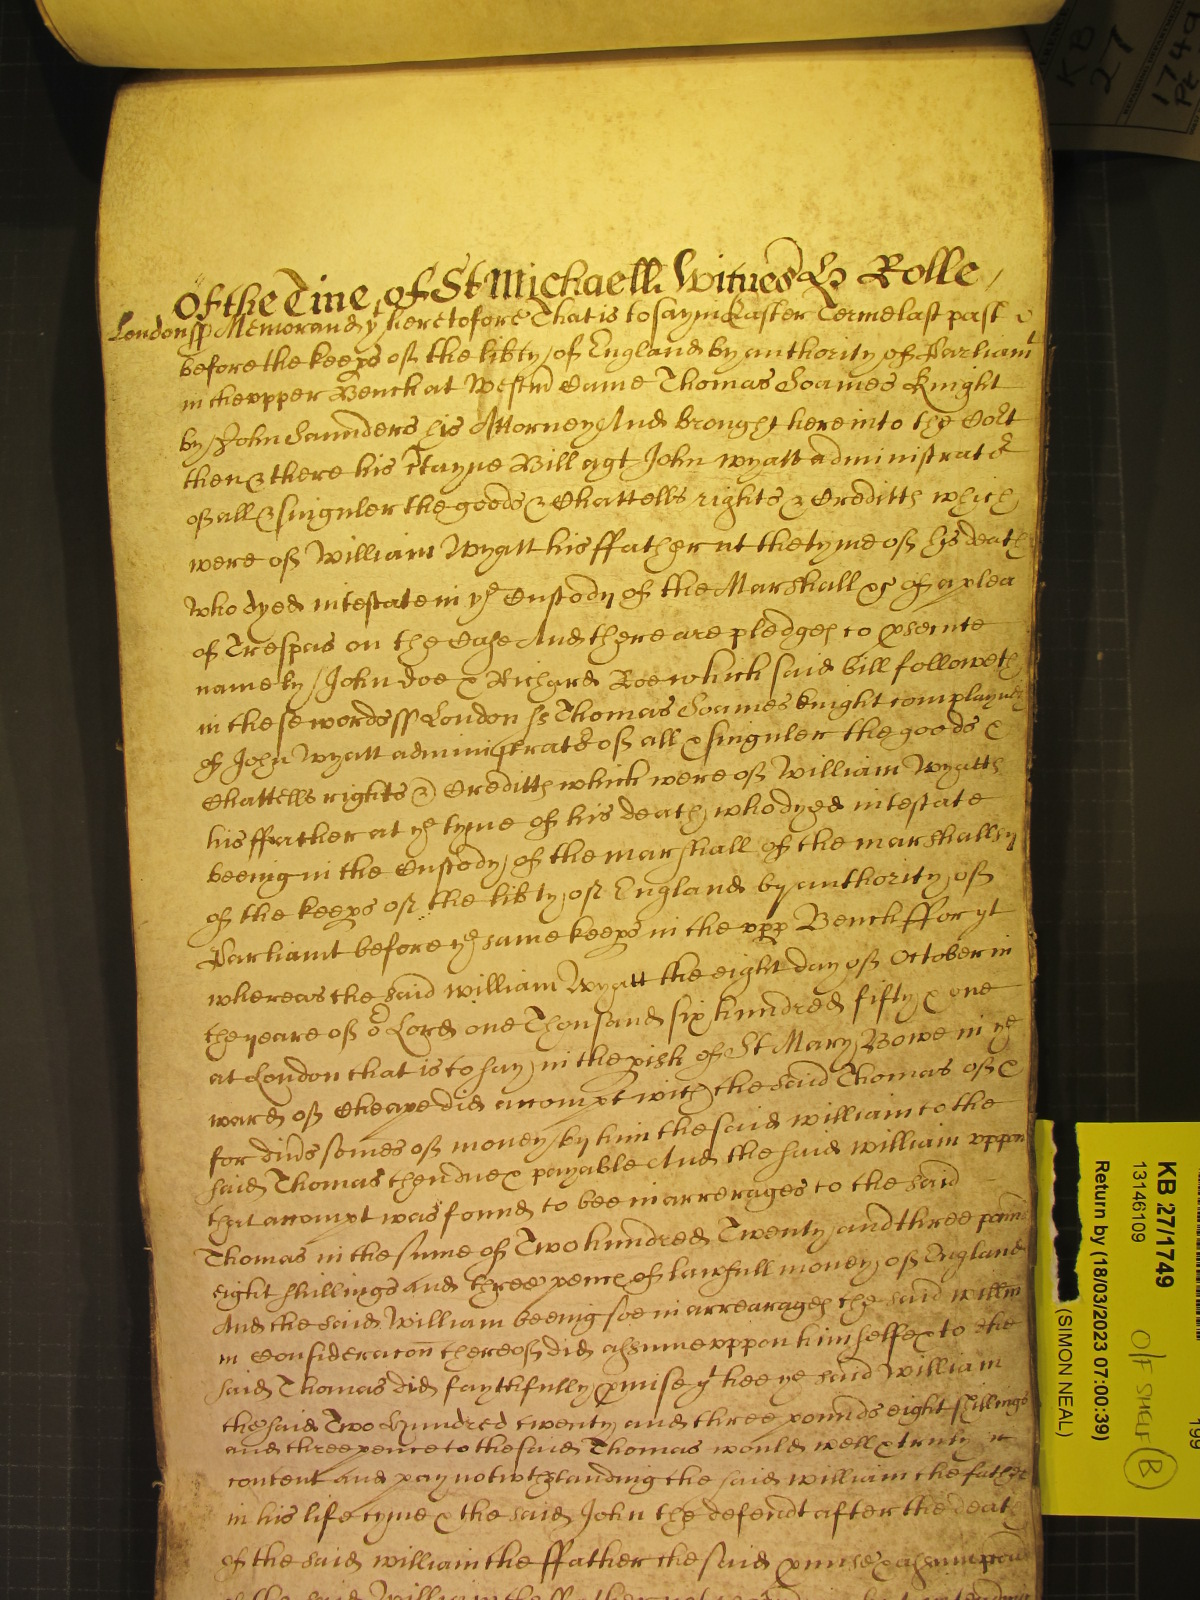 Of the Tme of St Michaell Witnes H Rolle
London ss Memorand yt heretofore That is to say in Easter Terme last past
before the keeps of the libty of England by authority of Parliamt
in the upper Bench at Westm Came Thomas Soames Knight
by John Saunders his Attorney And brought here into the Cort
then & there his tayne Bill agt John Wyatt administrator
of all & singuler the goods & Chattells rights & Creditts which
were of William Wyatt his ffather at the tyme of his death
who dyed intestate in ye Custody of the Marshall &c of a plea
of Trespas on the Case And there are pledges to psecute
namely John Doe & Richard Roe which said bill followeth
in these words ss London ss Thomas Soames knight complaynes
of John Wyatt administrator of all & singuler the goods &
Chattells rights & Creditts which were of William Wyatt
his ffather at ye tyme of his death who dyed intestate
beeing in the Custody of the marshall of the marshallsy
of the keeps of the libty of England by authority of
Parliamt before ye same keeps in the upp Bench ffor yt
whereas the said William Wyatt the eight day of October in
the yeare of or Lord one Thousand six hundred fifty & one
at London that is to say in the pish of St Mary Bowe in ye
ward of Cheape did accompt with the said Thomas of &
for divs somes of money by him the said William to the
said Thomas then due & payable And the said William uppon
that accompt was found to bee in arrerages to the said
Thomas in the sume of Two hundred Twenty and three pounds
eight shillings and three pence of lawfull money of England
And the said William beeing soe in arrearages the said Willm
in Consideracon thereof did assume uppon himselfe & to the
said Thomas did faythfully pmise yt hee ye said William
the said Two hundred twenty and three pounds eight shillings
and three pence to the said Thomas would well & truly
content and pay notwthstanding the said William the father
in his life tyme & the said John the defendt after the death
of the said William the ffather the said pmise & assumpcon
of the said William the ffather not
KB 27/1749
13146109
Return by (18/03/2023 07:00:39)
(SIMON NEAL)
O/F SHELF B
199
KB
27
1749
Pt